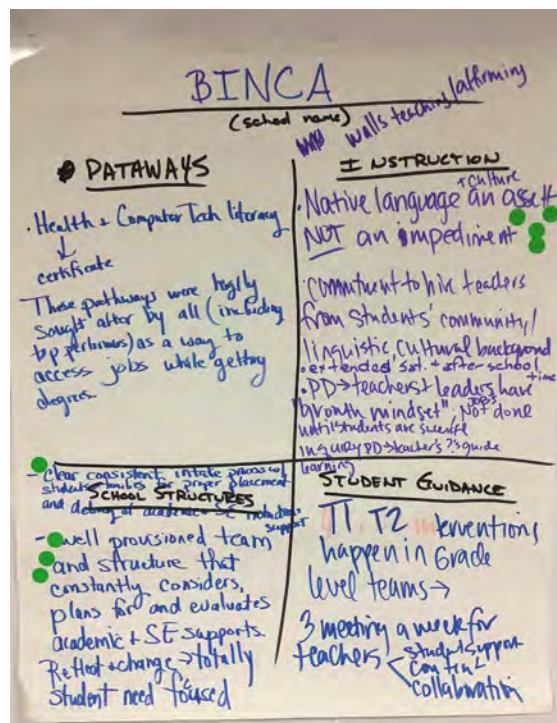 BINCA
(school name)
walls teaching/affirming
PATAWAYS
. Health + Computer Tech literacy
↓
certificate
These pathways were highly
sought after by all (including
top performers) as a way to
access jobs while getting
degrees.
INSTRUCTION
. Native language + culture an asset
NOT an impediment
. commitment to hire teachers
from students' community/
linguistic, cultural background
. extended sat. + after school time
. PD → teachers + leaders have
"growth mindset", Job's Not done
until students are
inquiry PD → teacher's ?'s guide
learning
- Clear consistent intake process of
students families for proper placement
and academic SE
support
SCHOOL STRUCTURES
- well provisioned team
and structure that
constantly considers,
plans for and evaluates
academic + SE supports.
Reflect + change → totally
student need focused
STUDENT GUIDANCE
T1 T2 interventions
happen in Grade
level teams →
3 meeting a week for
teachers
student support
content
collaboration